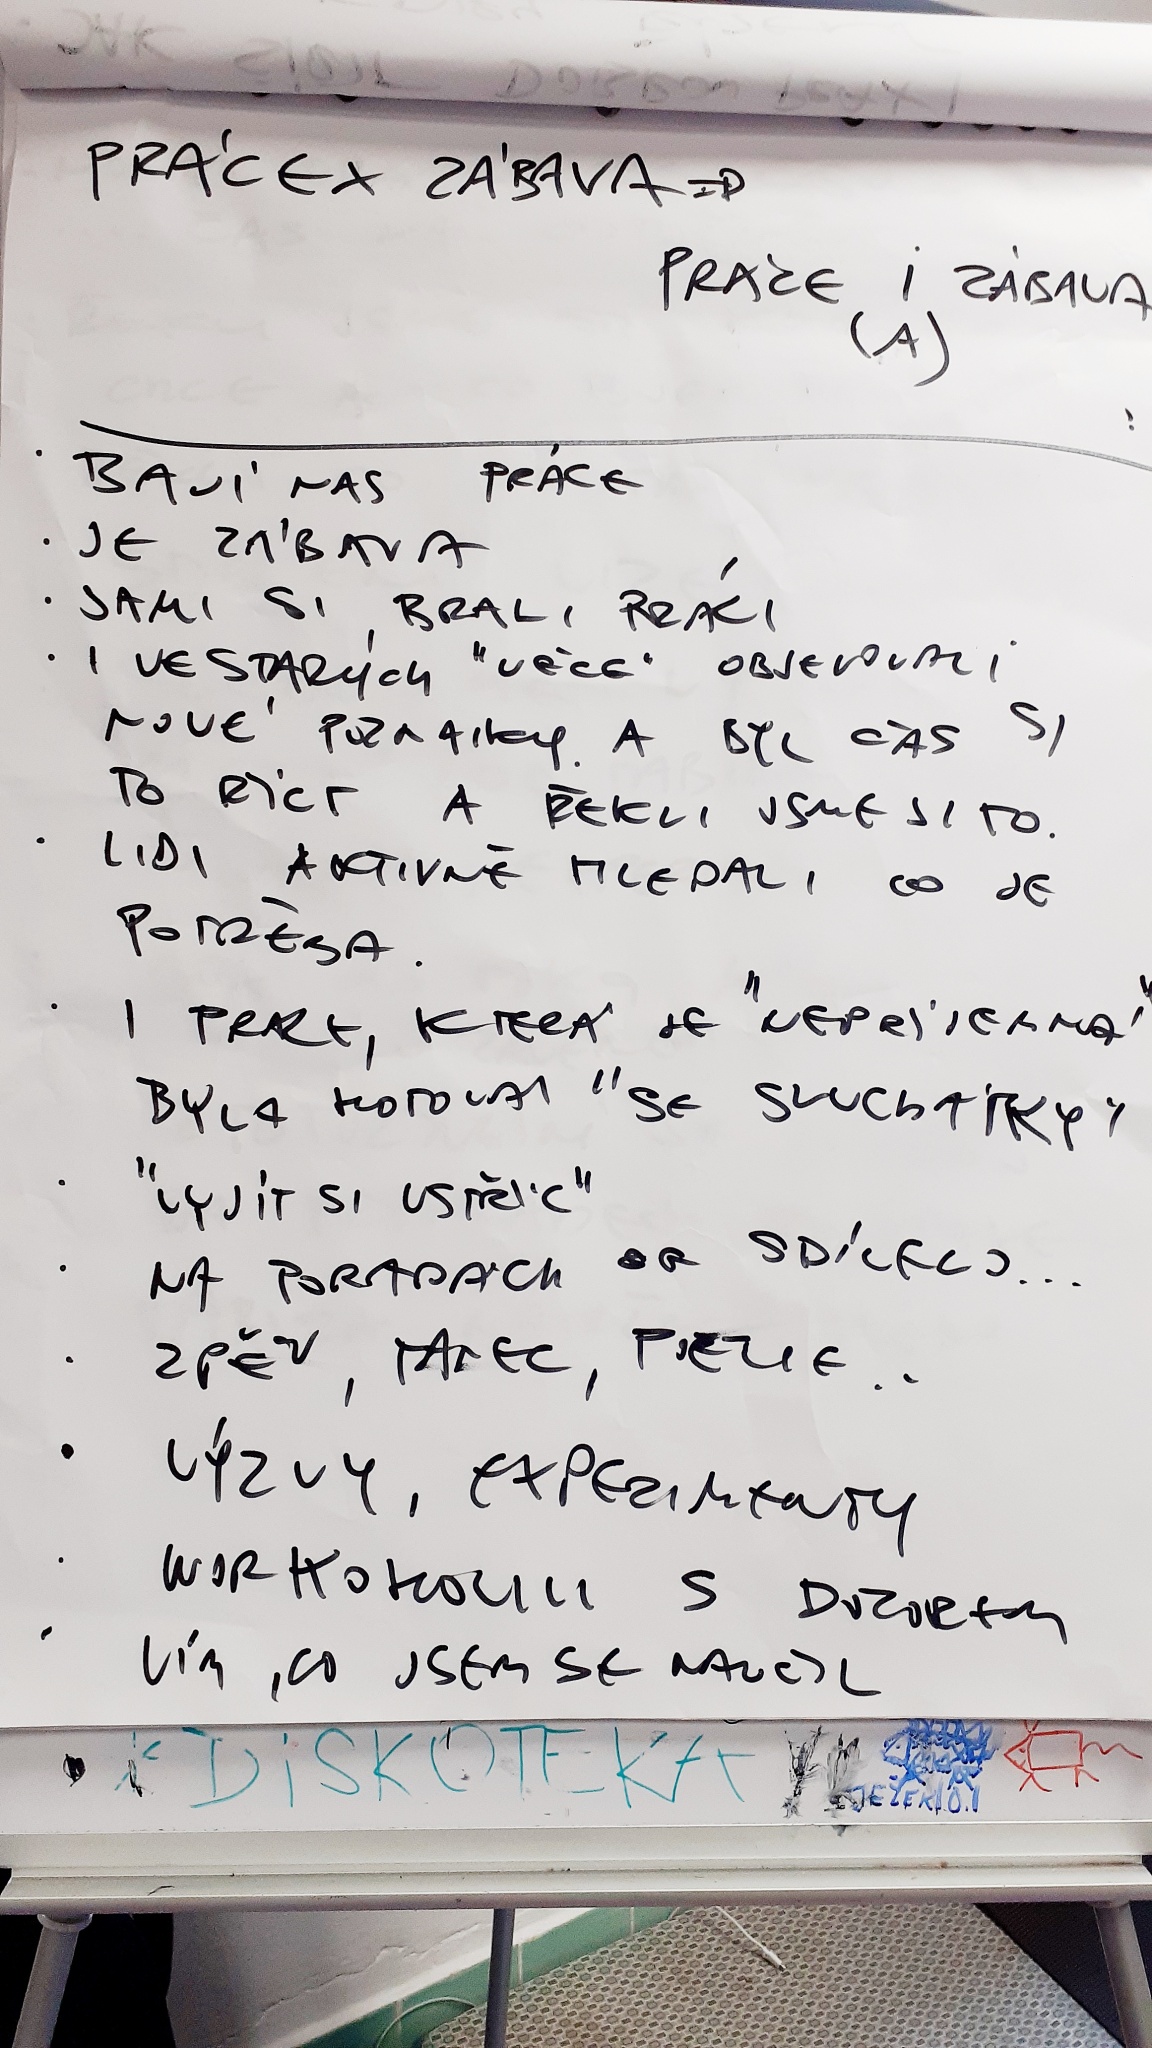 PRÁCE X ZÁBAVA =>
PRÁCE I ZÁBAVA
(A)
• BAVÍ NAS PRÁCE
• JE ZÁBAVA
• SAMI SI BRALI PRÁCI
• I VE STARÝCH "VĚCECH" OBJEVOVALI
NOVÉ POZNATKY. A BYL ČAS SI
TO ŘÍCT A ŘEKLI JSME SI TO.
• LIDI AKTIVNĚ HLEDALI CO JE
POTŘEBA.
• I PRÁCE, KTERÁ JE "NEPŘÍJEMNÁ"
BYLA "SE SLUCHÁTKY"
• "VYJÍT SI VSTŘÍC"
• NA PORADÁCH SE SDÍLELO...
• ZPĚV, TANEC, POEZIE..
• VÝZVY, EXPERIMENTY
• WORKOHOLICI S DOZOREM
• VÍM, CO JSEM SE NAUČIL
• DISKOTEKA
JEŽEK